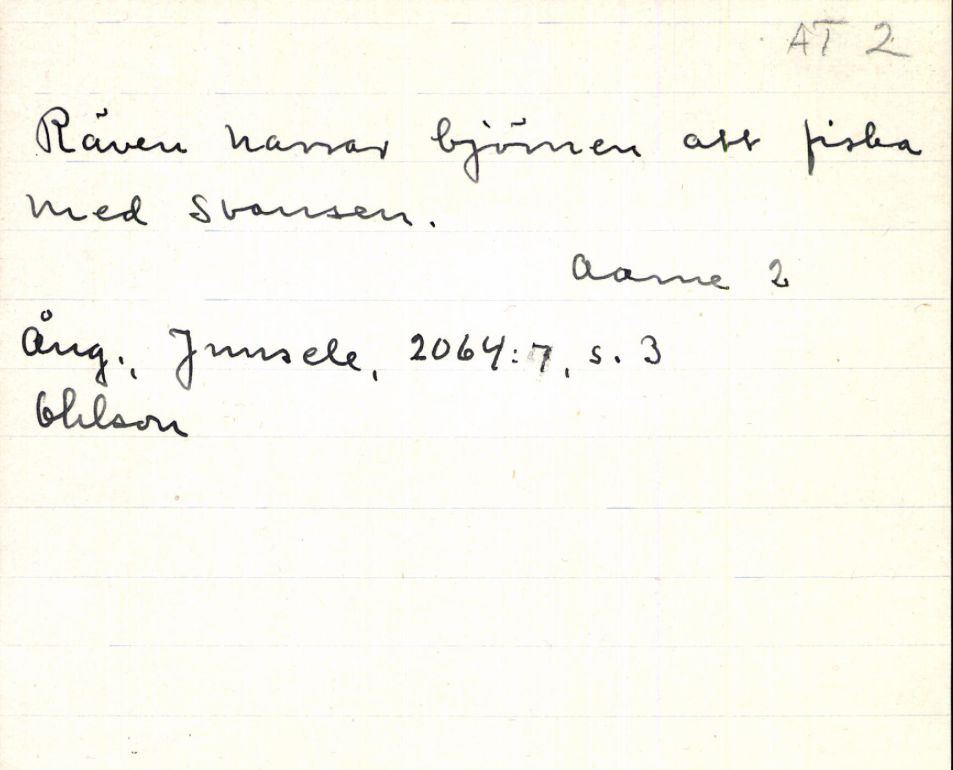 AT 2
Räven narrar björnen att fiska
med svansen.
Aarne 2
Ång., Junsele, 2064:7, s. 3
Ohlson